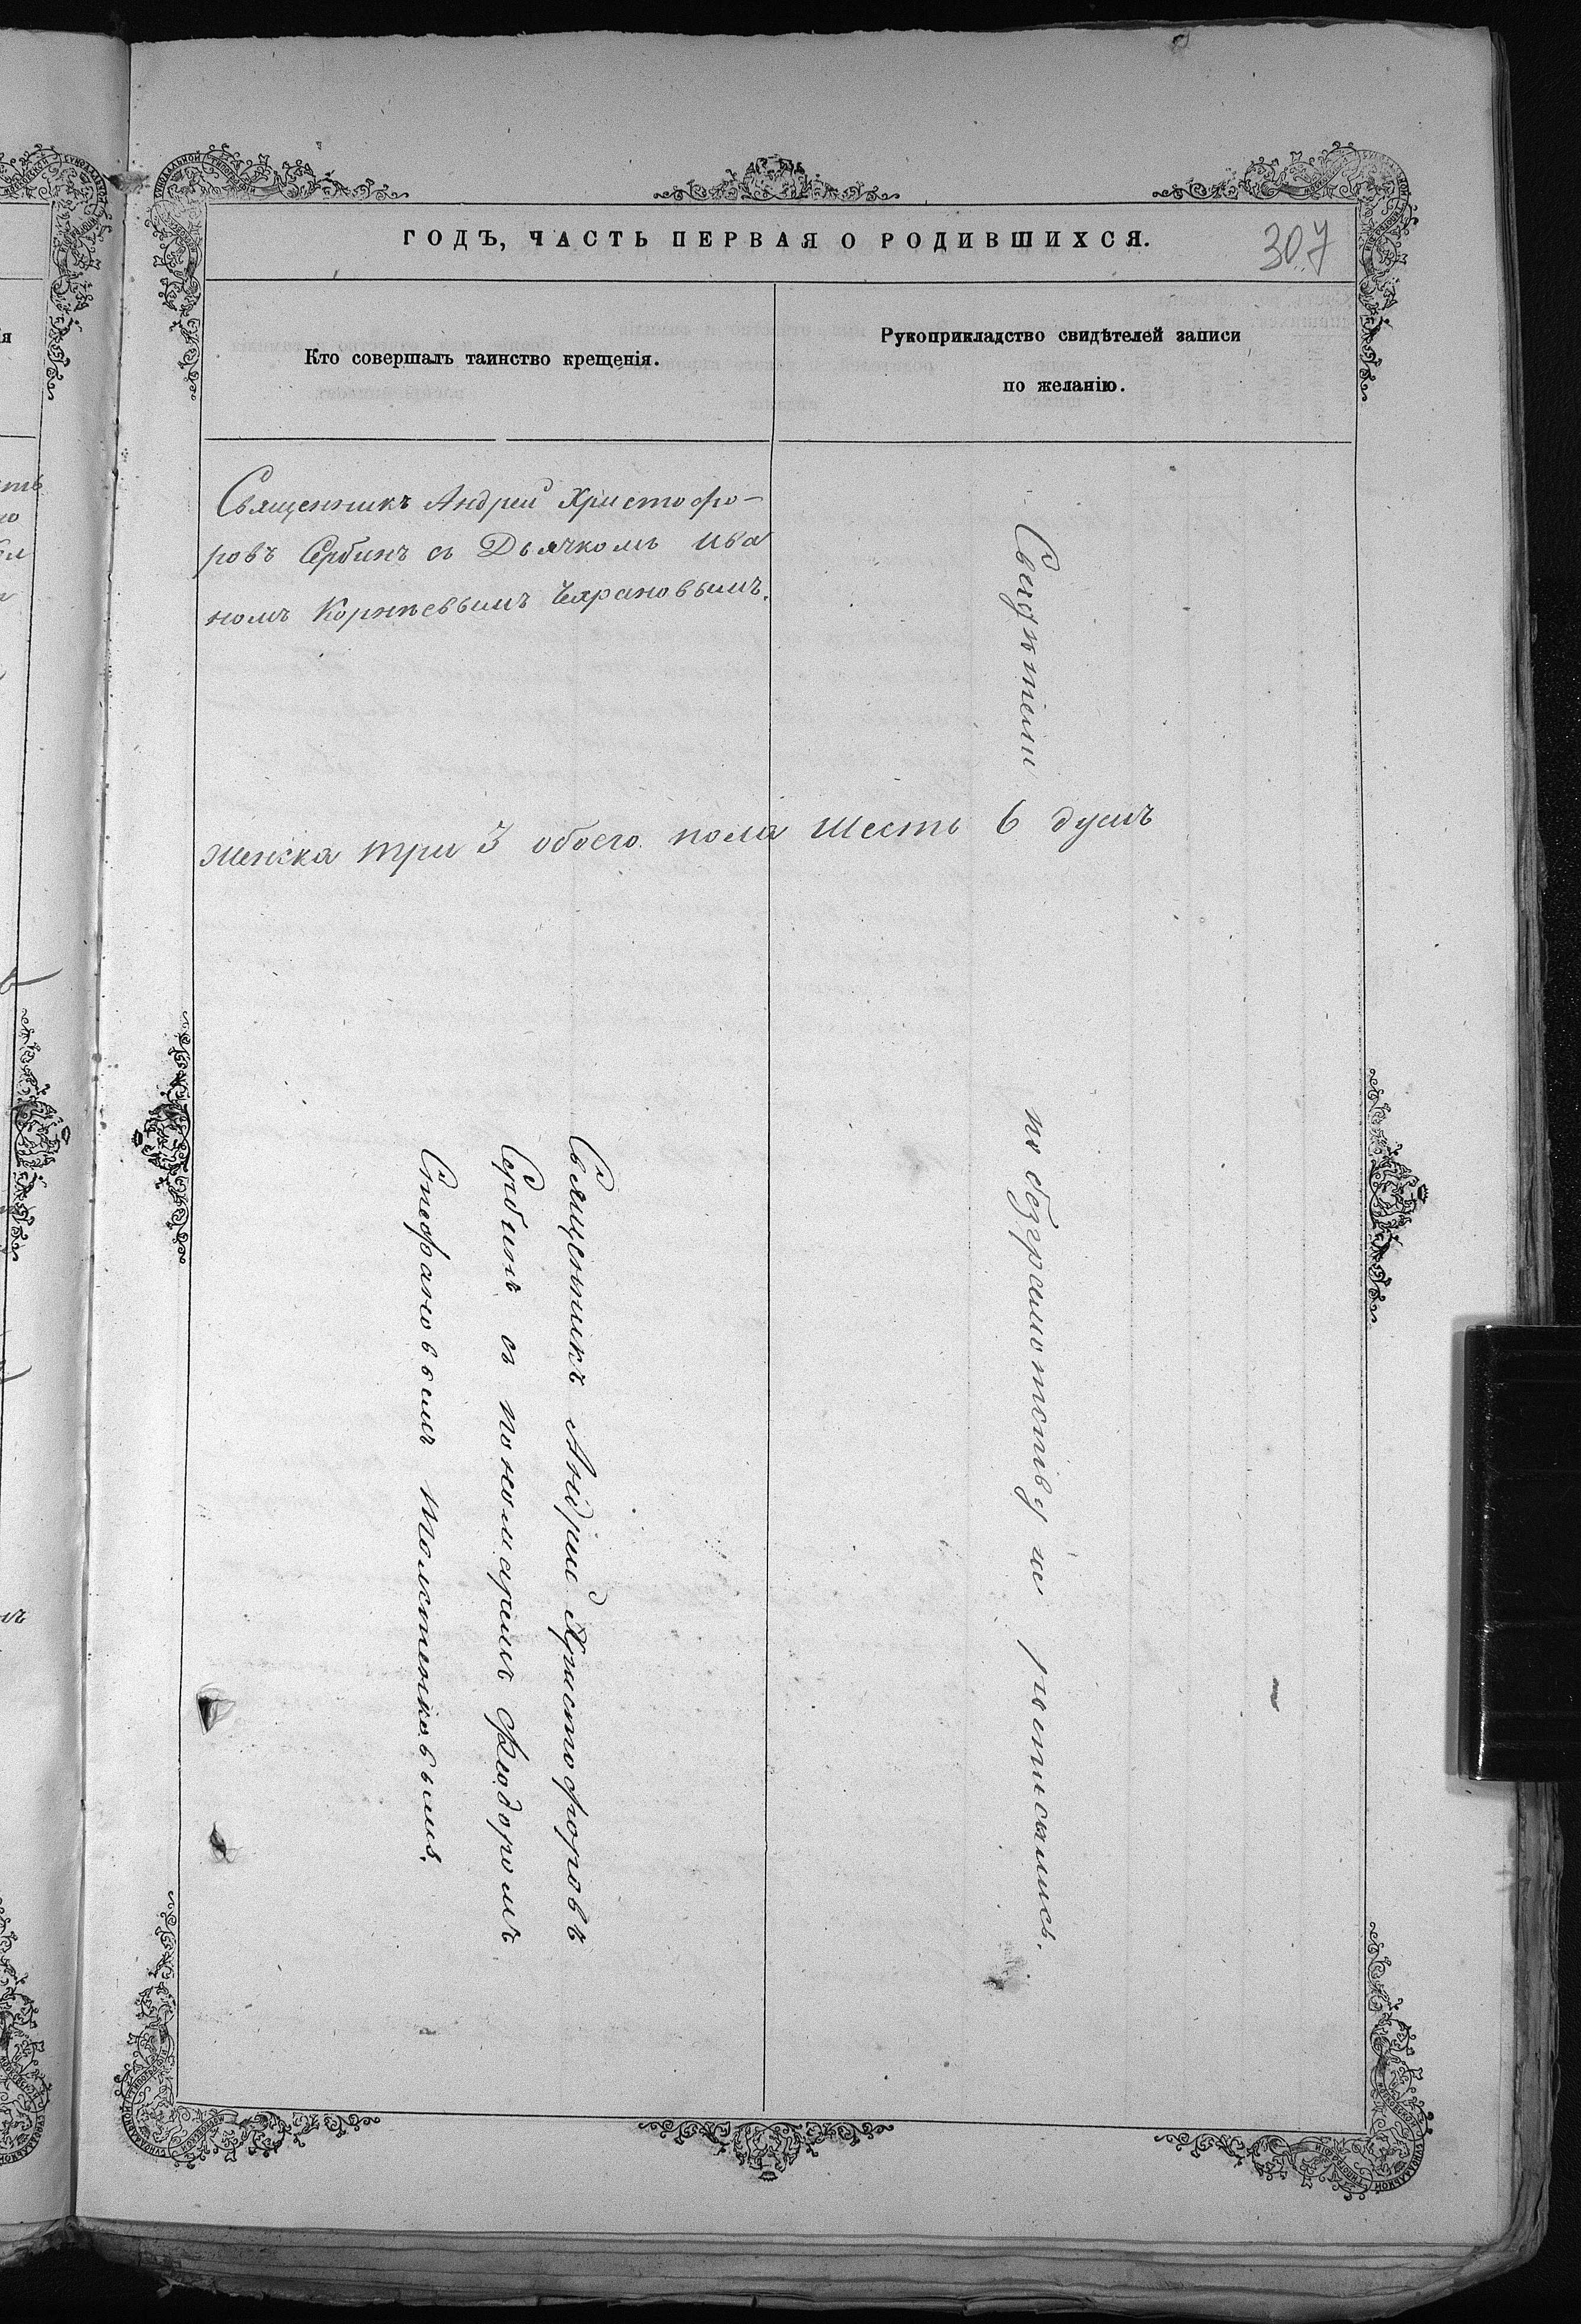 ГОДЪ, ЧАСТЬ ПЕРВАЯ О РОДИВШИХСЯ.
307
Кто совершалъ таинство крещенія.
Рукоприкладство свидѣтелей записи
по желанію.
Священникъ Андрей Христофо-
ровъ Сербинъ съ Дьячкомъ Ива
номъ Корнѣевымъ
женска три 3 обоего пола шесть 6 душъ
Священникъ Андрей Христофоровъ
Сербинъ съ пономаремъ Ѳеодоромъ
Стефановымъ Толстенковымъ.
Свидѣтели по безграмотству не росписались.